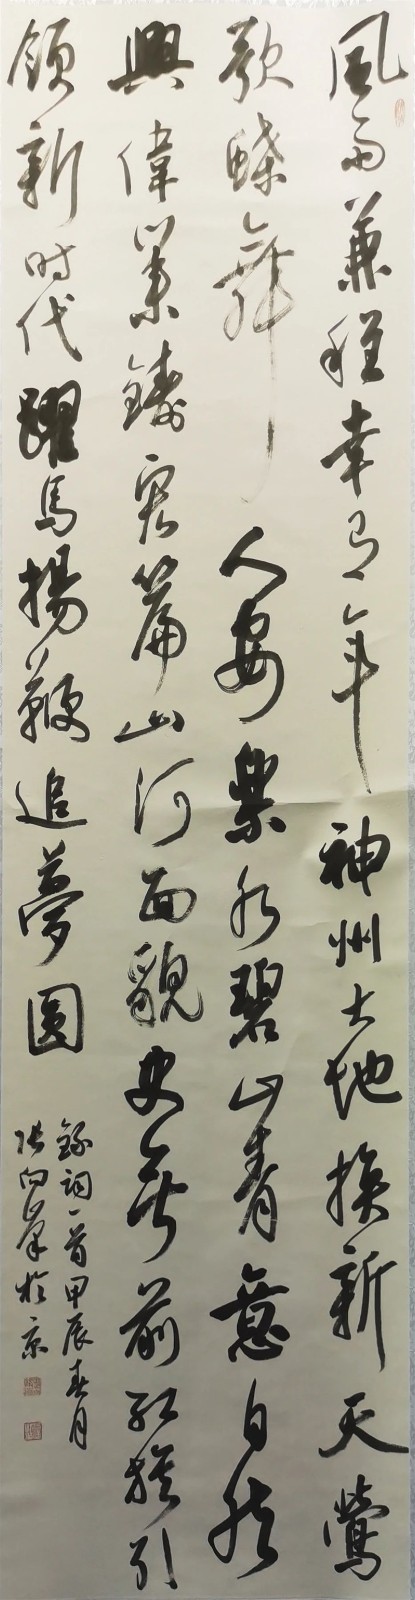 風雨兼程幸年神州大地換新天鶯
歌蝶舞人安樂水碧山青意自然
興偉業鑄宏篇山河面貌史無前紅旗引
領新时代躍馬揚鞭追夢圓
錄詞一首甲辰春月
張向於京